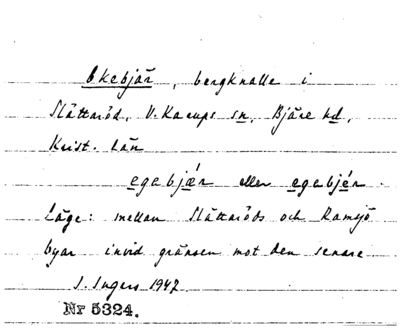 Ekebjär, bergknalle i
Slättaröd, V. Karups sn, Bjäre hd,
Krist. län
egabjǽr eller egabjér.
Läge: mellan Slättaröds och Ramsjö
byar invid gränsen mot den senare
I. Ingers 1947
Nr 5324.